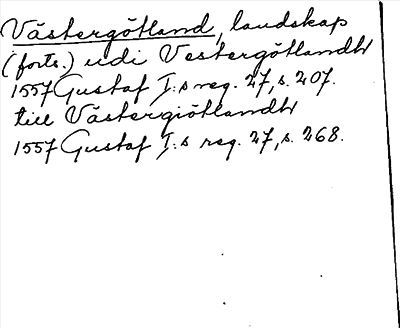 Västergötland, landskap
(forts.) udi Vestergötlandh
1557 Gustaf I:s reg. 27, s. 207.
till Västergiötlandh
1557 Gustaf I:s reg. 27, s. 268.